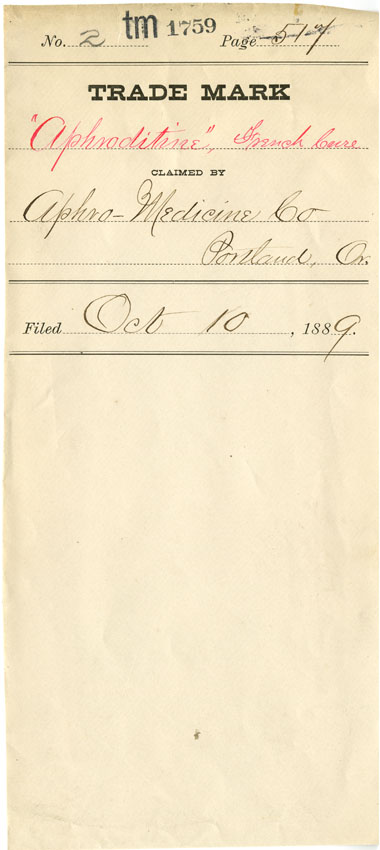 tm 1759
No. 2 Page 517
TRADE MARK
"Aphroditine", French Cure
CLAIMED BY
Aphro-Medicine Co
Portland, Or.
Filed Oct 10, 1889.